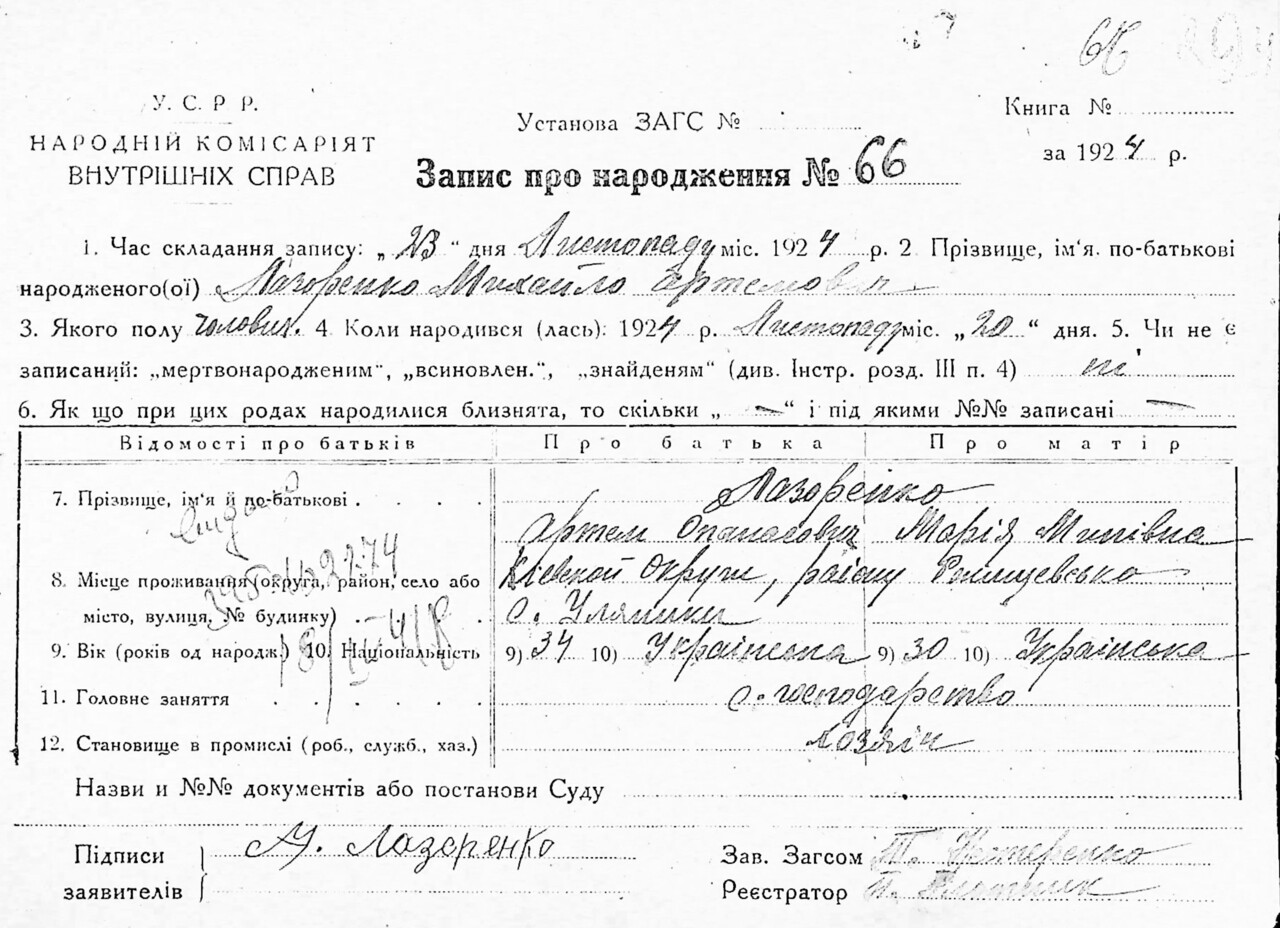 66
У. С. Р Р.
НАРОДНІЙ КОМІСАРІЯТ
ВНУТРІШНІХ СПРАВ
Установа ЗАГС №
Книга №
за 1924 р.
Запис про народження № 66
1. Час складання запису: „23“ дня Листопаду міс. 1924 р. 2 Прізвище, ім'я. по-батькові
народженого(ої) Лазоренко Михайло Артемович
3. Якого полу чолович. 4. Коли народився (лась): 1924 р. Листопаду міс. „20“ дня. 5. Чи не є
записаний: „мертвонародженим“, „всиновлен.“, „знайденям“ (див. Інстр. розд. III п. 4) ні
6. Як що при цих родах народилися близнята, то скільки „ — “ і під якими №№ записані —
Відомості про батьків Про батька Про матір
7. Прізвище, ім'я й по-батькові . . . . Лазоренко
Артем Опанасович Марія Минівна
8. Місце проживання (округа, район, село або Київской Округи, району Ржищевсько
місто, вулиця, № будинку) . . . . с. Уляники
9. Вік (років од народж.) 10. Національність 9) 34 10) Українська 9) 30 10) Українська
11. Головне заняття . . . . . . с. господарство
12. Становище в промислі (роб., служб., хаз.) Хозяїн
Назви и №№ документів або постанови Суду
Підписи А. Лазаренко
заявителів
Зав. Загсом Т. Нестеренко
Реєстратор П. Плотник